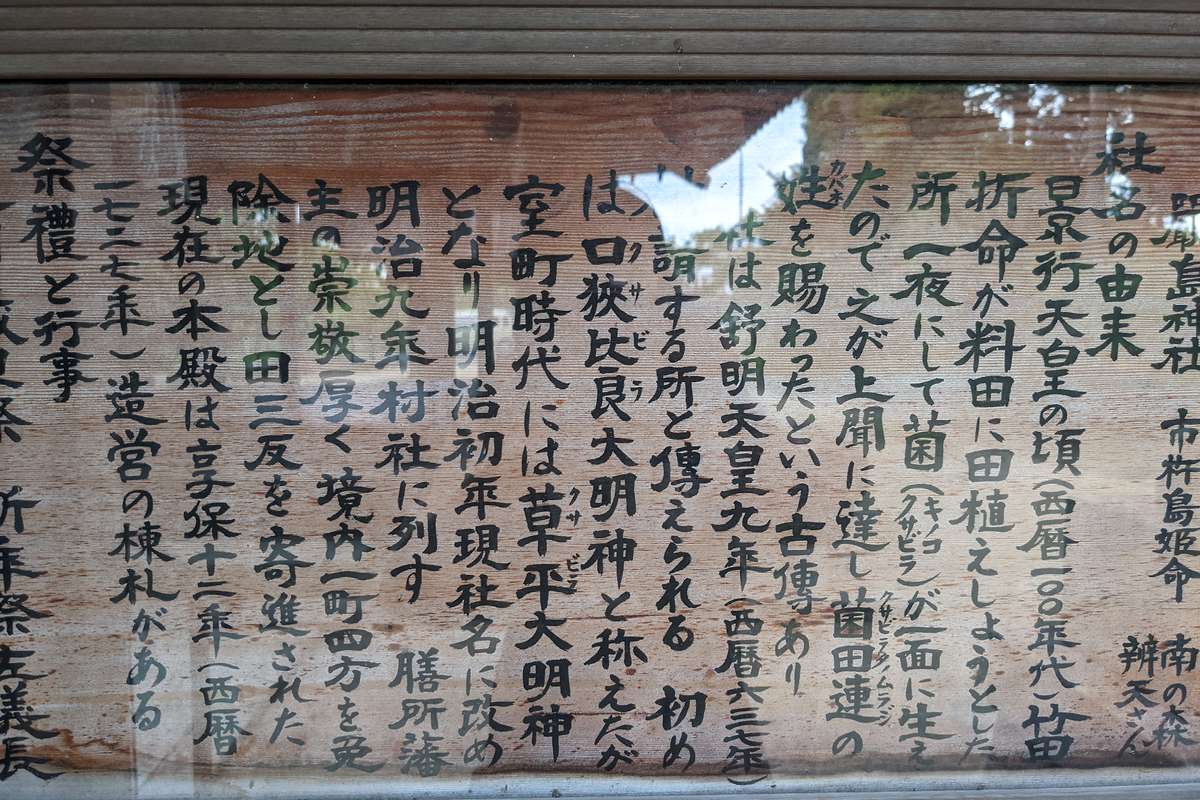 島神社 市杵島姫命 南の森
辨天さん
社名の由来
景行天皇の頃(西暦一〇〇年代)竹田
折命が料田に田植えしようとした
所一夜にして菌(キノコ クサビラ)が一面に生え
たので之が上聞に達し菌田連の
クサビラノムラジ
姓を賜わったという古傳あり
カバネ
は舒明天皇九年(西暦六三七年)
請する所と傳えられる 初め
は口狹比良大明神と称えたが
クサビラ
室町時代には草平大明神
クサビラ
となり明治初年現社名に改め
明治九年村社に列す 膳所藩
主の崇敬厚く境内一町四方を免
除地とし田三反を寄進された
現在の本殿は享保十二年(西暦
一七二七年)造営の棟札がある
祭禮と行事
祭 祈年祭左義長